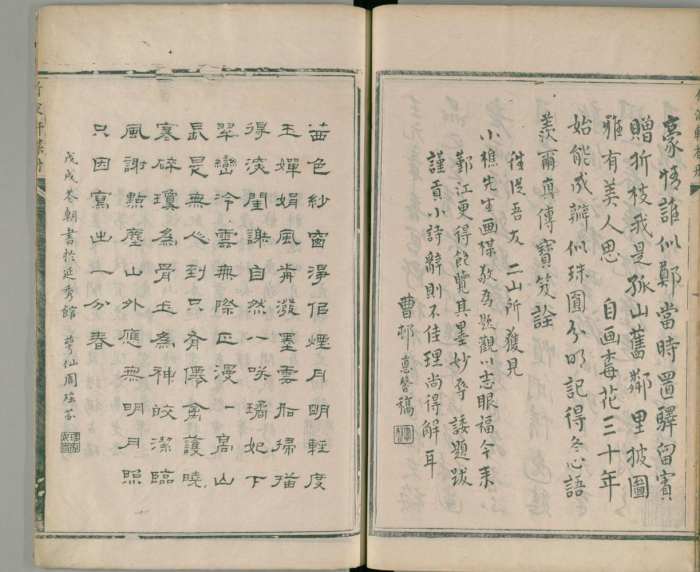 豪情誰似鄭當時置驛留賓
贈折枝我是孤山舊鄰里披圖
雖有美人思 自画梅花三十年
始能成瓣似珠圓分明記得冬心語
羨爾真傳寶笈詮
後從吾友二山所獲見
小樵先生画理敬為題觀以志眼福今來
鄞江更得飽覽其墨妙承諉題跋
謹賁小詩辭則不佳理尚得解耳
曹邨 稿
茜色紗窗淨似煙月明輕度
玉嬋娟風前潑墨雲如掃描
得淡閒謝自然 一咲 妃下
翠巒冷雲無際正漫一島山
長是無心到只有儂禽護曉
寒碎瓊為骨玉為神皎潔臨
風謝點塵山外應無明月照
只因寫出一分春
戊戌春朝書於延秀館 夢仙周